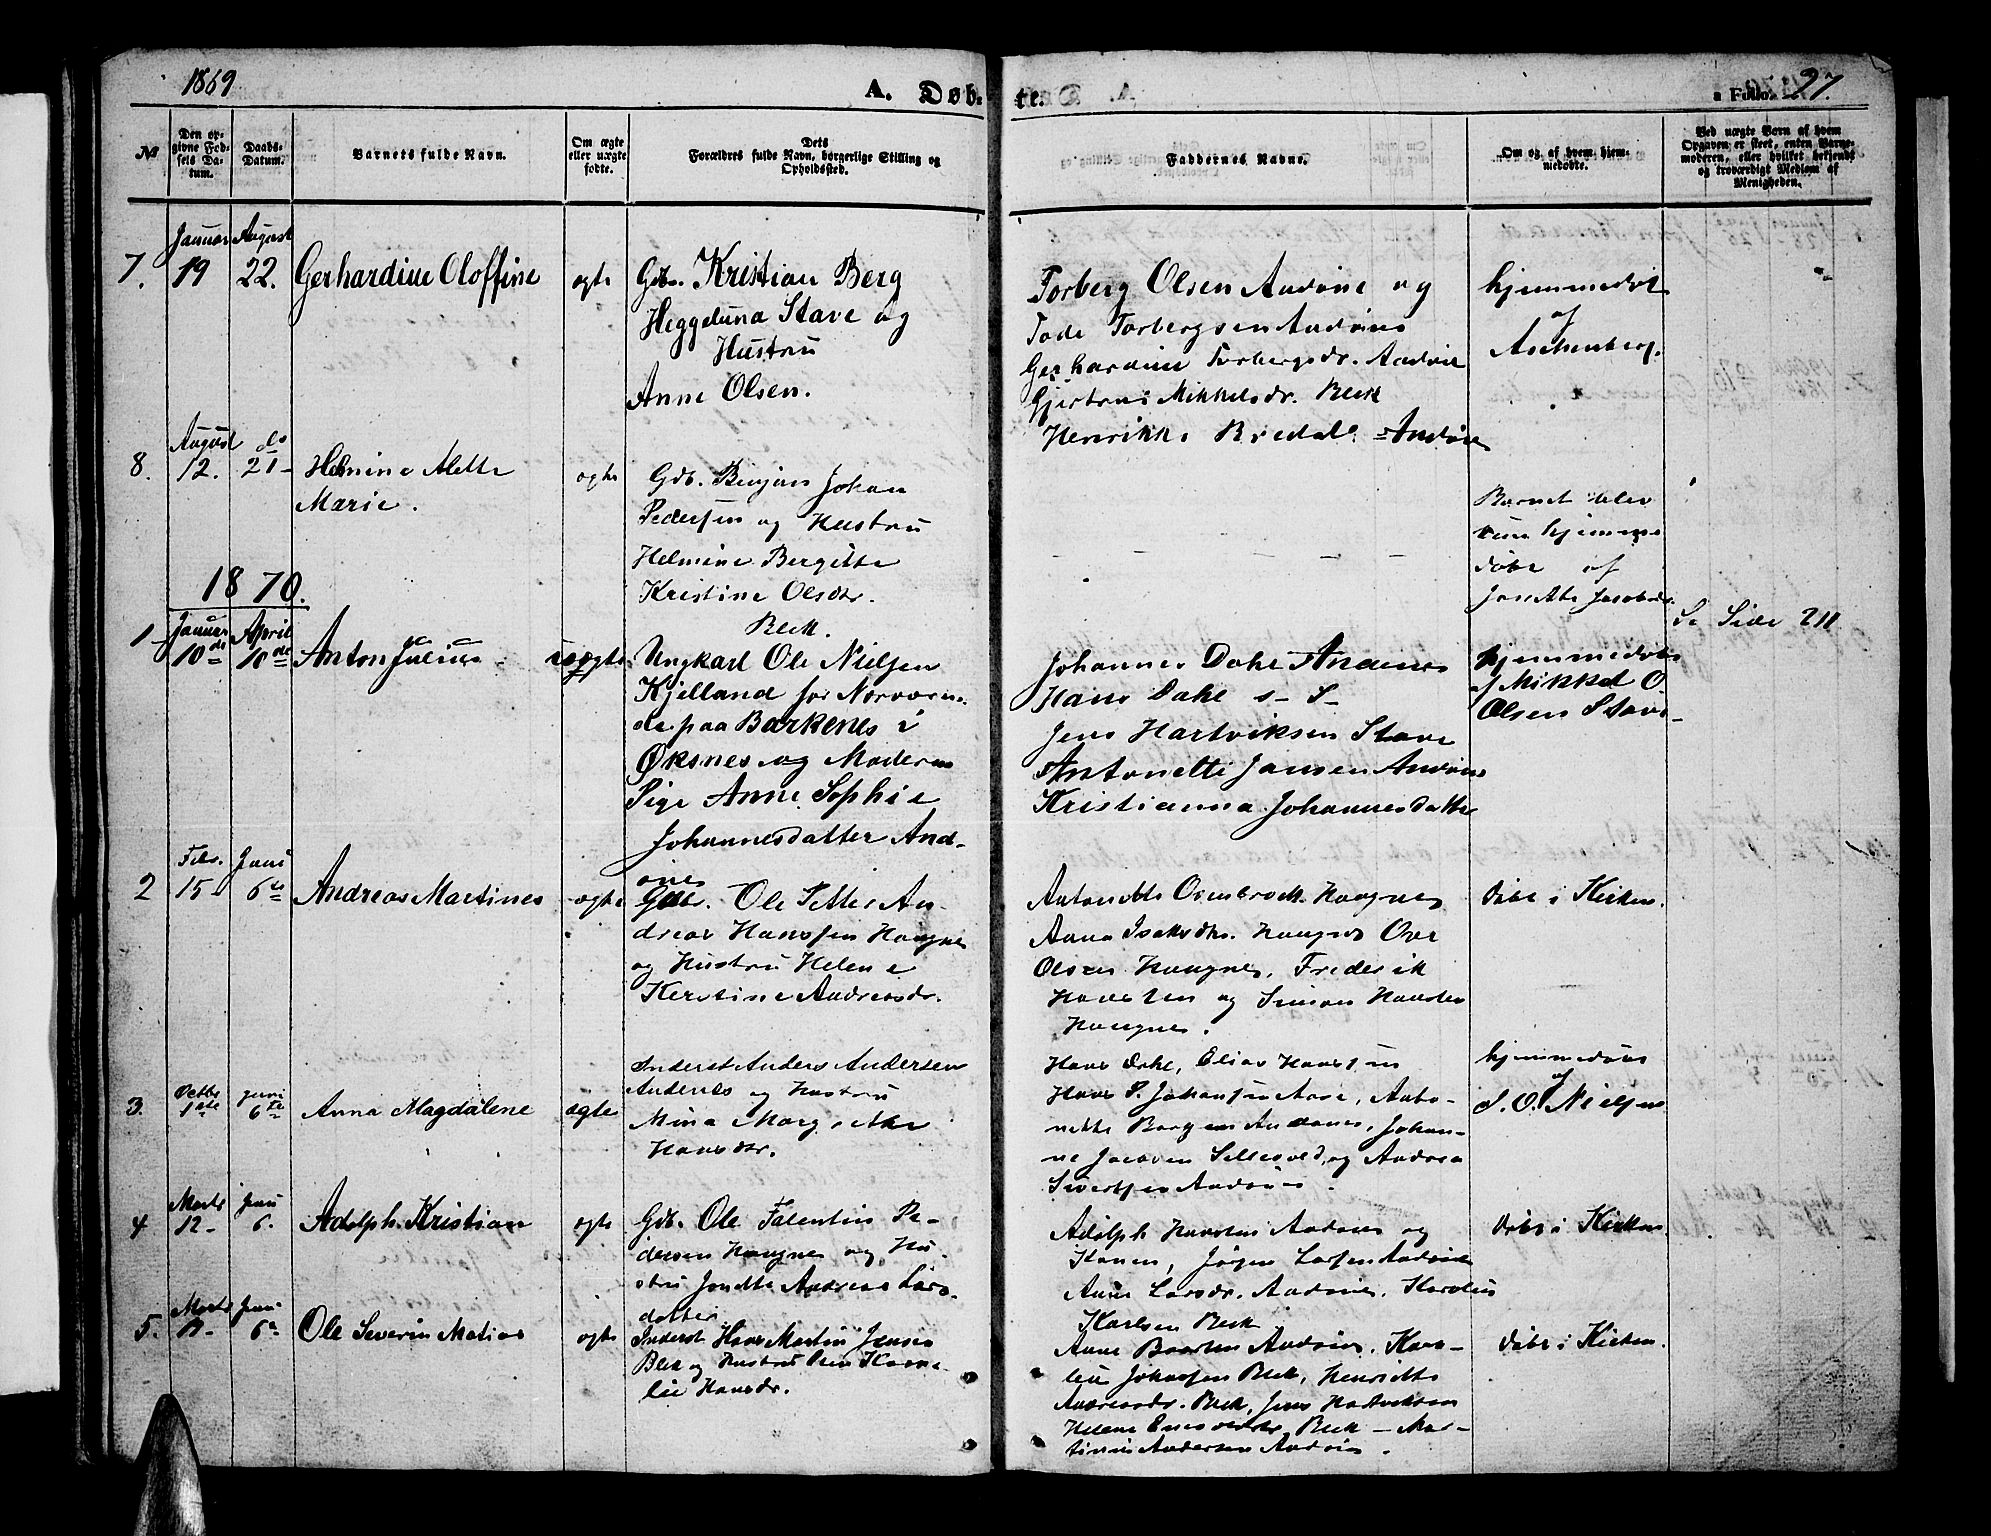 1869
A. Døb- te.
a Folio. 27.
№
Den opgivne Fødsels Datum.
Daabs-Datum.
Barnets fulde Navn.
Om ægte eller uægte fødte.
Dets Forældres fulde Navn, borgerlige Stilling og Opholdssted.
Faddernes Navne.
Om og af hvem hjemmedøbte.
Ved uægte Børn af hvem Opgaven er skeet, enten Barnemoderen, eller hvilket bekjendt og troværdigt Medlem af Menigheden.
7.
Januar 19
August 22.
Gerhardine Oloffine
ægte
Gdb. Kristian Berg
Heggeluna Stave og
Hustru
Anne Olsen.
Torberg Olsen Andøne og
Tode Torbergsen Andønes
Gerhardine Torbergsdr. Andøne
Mikkelsdr. Blek
Henrikke Bredal Andøne
hjemmedøbt
af
Aschenberg.
8.
August 12.
do 21
Helmine Alette
Marie.
ægte
Gdb. Benjam Johan
Pedersen og Hustru
Helmine Bergitte
Kristine Olsdtr.
Blek.
Barnet blev
kun hjemme
døbt af
Jonette Jacobsdr.
1870.
1
Januar 10de
April 10de
Anton Julius
uægte
Ungkarl Ole Nielsen
Kjelland for Nærværen-
de paa Barkenes i
Øksnes og Moderen
Pige Anne Sophie
Johannesdatter And-
ønes
Johannes Dahl Andenes
Hans Dahl s- S-
Jens Hartviksen Stave
Antonette Jansen Andøne
Kristianna Johannesdatter
hjemmedøbt
af Mikkel O.
Olsen Stave
Se Side 211
2
Febr. 15
Juni 6te
Andreas Martines
ægte
Gdbr. Ole Petter An-
dreas Hanssen Haugnes
og Hustru Helene
Kerstine Andreasdr.
Antonette Haugnes
Anna Isaksdtr. Haugnes Ove
Olsen Haugnes, Frederik
Hansen og Simon Hansen
Haugnes.
Døbt i Kirken.
3.
Octbr 1ste
Juni 6te
Anna Magdalene
ægte
Inderst Anders Andersen
Andenes og Hustru
Mina Margrethe
Hansdtr.
Hans Dahl, Elias Hanssen
Hans P. Johansen Aase, Anto-
nette Borgen Andenes, Johan-
ne Jacobsen og Andrea
Sivertsen Andønes.
hjemmedøbt
af
S. O. Nielsen
4
Marts 12
Juni 6.
Adolph Kristian
ægte
Gdb. Ole Falentin Pe-
dersen Haugnes og Hu-
stru Jonette Andrea Lars-
datter.
Adolph Hansen Andønes og
Konen, Jørgen Larsen Andøne
Anne Larsdr. Andønes, Karolius
Karlsen Blek
Døbt i Kirken.
5.
Marts
Juni 6te
Ole Severin Matias
ægte
Inderst Hans Martin Jensen
Blek og Hustru
lie Hansdr.
Anne Andønes,
Johansen Blek, Henriette
Andreasdr. Blek, Jens Hartviksen
Helene Blek - Mar-
tinus Andersen Andønes.
Døbt i Kirken.